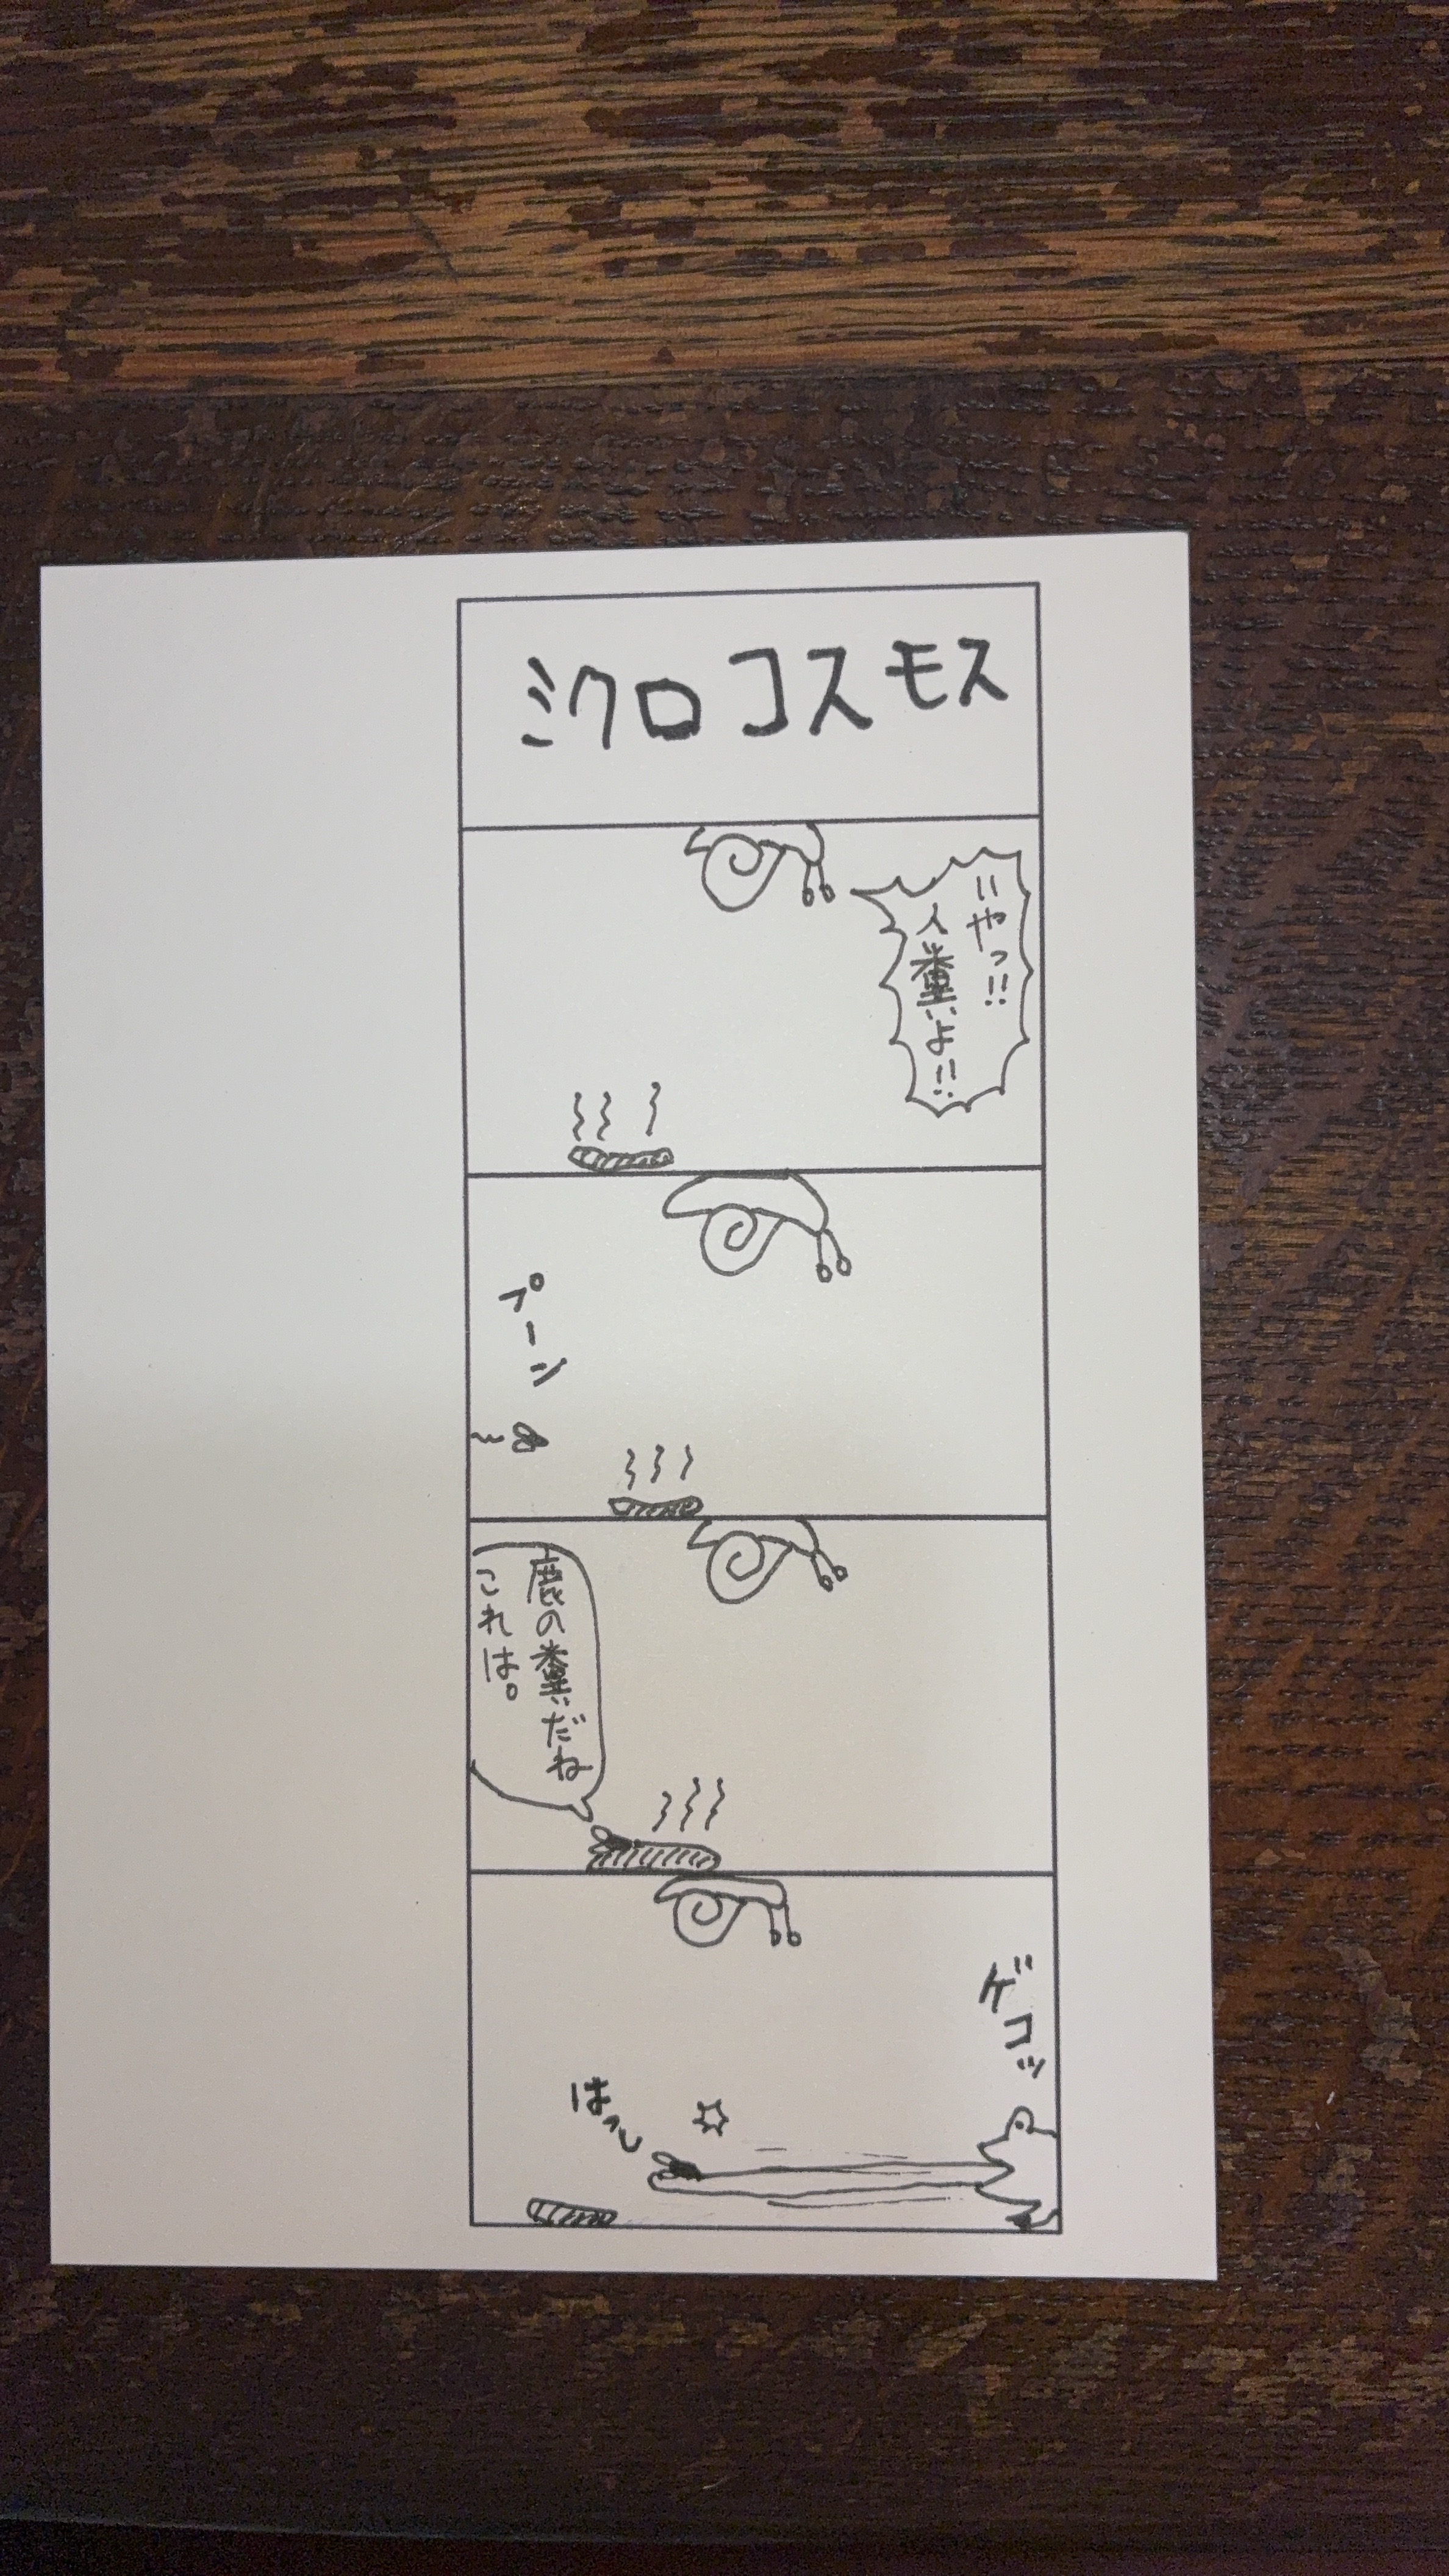 ミクロコスモス
いやっ!!
人糞よ!!
プーン
鹿の糞だね
これは。
ゲコッ
はっし